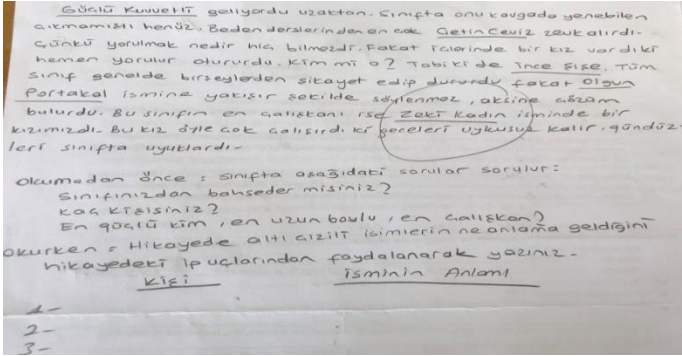 Güçlü Kuvvetli geliyordu uzaktan. Sınıfta onu kavgada yenebilen
çıkmamıştı henüz. Beden derslerinden en çok Çetin Ceviz zevk alırdı.
Çünkü yorulmak nedir hiç bilmezdi. Fakat içlerinde bir kız vardı ki
hemen yorulur otururdu. Kim mi o? Tabi ki de İnce Şişe. Tüm
sınıf genelde birşeylerden şikayet edip dururdu fakat Olgun
Portakal ismine yakışır şekilde söylenmez, aksine çözüm
bulurdu. Bu sınıfın en çalışkanı ise Zeki Kadın isminde bir
kızımızdı. Bu kız öyle çok çalışırdı ki geceleri uykusuz kalır, gündüz-
leri sınıfta uyuklardı.
Okumadan önce : Sınıfta aşağıdaki sorular sorulur:
Sınıfınızdan bahseder misiniz?
Kaç kişisiniz?
En güçlü kim, en uzun boylu, en çalışkan?
Okurken = Hikayede altı çizili isimlerin ne anlama geldiğini
hikayedeki ipuçlarından faydalanarak yazınız.
Kişi İsminin Anlamı
1-
2-
3-